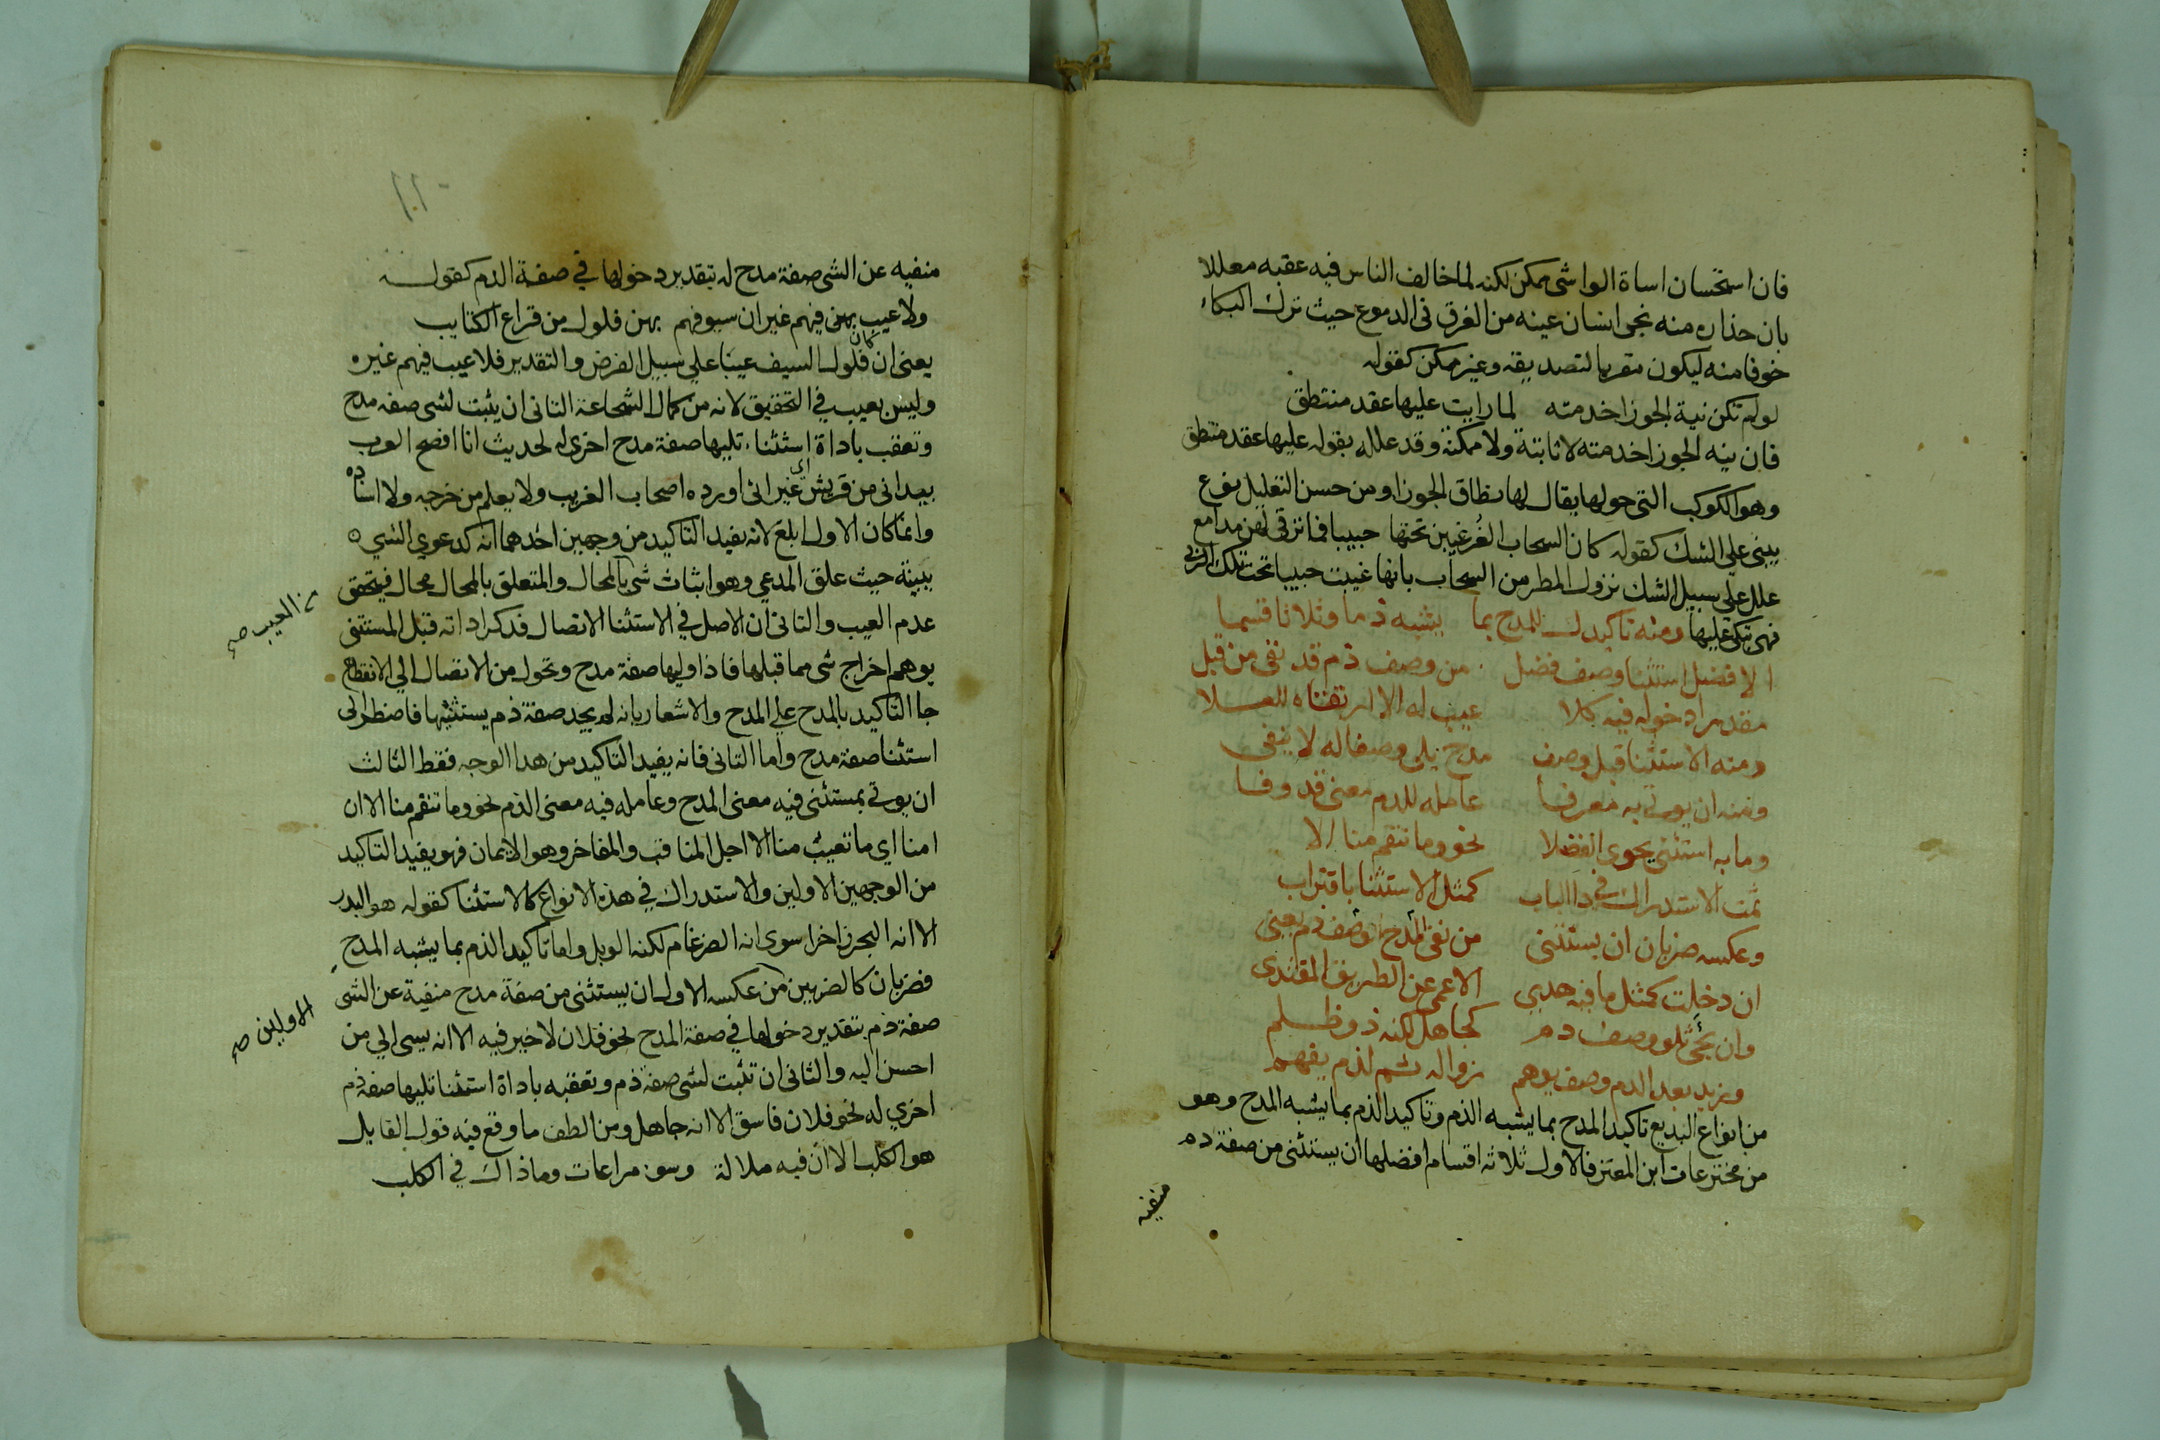 فان استحسان اساة الواشي ممكن لكنه لما خالف الناس فيه عقبه معللا
بان حذاره منه نجي انسان عينه من الغرق في الدموع حيث ترك البكاء
خوفا منه ليكون مقربا لتصديقه وغير ممكن كقوله
لو لم تكن نية الجوزا خدمته لما رايت عليها عقد منتطق
فان نية الجوزا خدمته لا ثابتة ولا ممكنة وقد علله بقوله عليها عقد منتطق
وهو الكوكب التي حولها يقال لها نطاق الجوزا ومن حسن التعليل نوع
يبني علي الشك كقوله كان السحاب الغر غيبن تحتها حبيبا فما ترقي لهن مدامع
علل علي سبيل الشك نزول المطر من السحاب بانها غيبت حبيبا تحت تلك الربي
فهي تبكي عليها ومنه تاكيدك للمدح بما يشبه ذما وثلاثا قسما
الافضل استثنا وصف فضل من وصف ذم قد نفي من قبل
مقدرا دخوله فيه كلا عيب له الا ارتقاه للعلا
ومنه الاستثنا قبل وصف مدح يلي وصفا له لا ينفي
ومنه ان يوتي به مفرفا عامله للدم معني قد وفا
وما به استثني يحوي الفضلا نحو وما تنقم منا الا
ثمت الاستدراك في ذا الباب كمثل الاستثنا باقتراب
وعكسه ضربان ان يستثني من نفي المدح وصف ذم يعني
ان دخلت كمثل ما فيه هدي الا عمي عن الطريق المقتدي
وان تجي تلو وصف دم كجاهل لكنه ذو ظلم
ويزيد بعد الدم وصف يوهم زواله ثم لذم يفهم
من انواع البديع تاكيد المدح بما يشبه الذم وتاكيد الذم بما يشبه المدح وهو
من مخترعات ابن المعتز فالاول ثلاثة اقسام افضلها ان يستثني من صفة دم
منفيه
منفيه عن الشي صفة مدح له بتقدير دخولها في صفة الدم كقوله
ولا عيب فيهم غير ان سيوفهم بهن فلول من قراع الكتايب
يعني ان كان فلول السيف عيبا علي سبيل الفرض والتقدير فلا عيب فيهم غيره
وليس بعيب في التحقيق لانه من كمال الشجاعة الثاني ان يثبت لشي صفة مدح
وتعقب باداة استثناء تليها صفة مدح اخري له لحديث انا افصح العرب
بيد اني من قريش اي غير اني اورده اصحاب الغريب ولا يعلم من خرجه ولا اسناده
وانما كان الاول ابلغ لانه يفيد التاكيد من وجهين احدهما انه كدعوي الشي
ببينة حيث علق المدعي وهو اثبات شي بالمحال والمتعلق بالمحال محال فيتحقق
من العيب صح
عدم العيب والثاني ان الاصل في الاستثنا الاتصال فدكر اداته قبل المستثني
يوهم اخراج شي مما قبلها فاذا وليها صفة مدح وتحول من الاتصال الي الانقطاع
جا التاكيد بالمدح علي المدح والاشعار بانه لم يجد صفة ذم يستثنيها فاضطر الي
استثنا صفة مدح واما الثاني فانه يفيد التاكيد من هدا الوجه فقط الثالث
ان يوتي بمستثني فيه معني المدح وعامله فيه معني الذم نحو وما تنقم منا الا ان
امنا اي ما تعيب منا الا اجل المناقب والمفاخر وهو الايمان فهو يفيد التاكيد
من الوجهين الاولين والاستدراك في هذه الانواع كالاستثنا كقوله هو البدر
الا انه البحر زاخرا سوي انه الضرغام لكنه الوبل واما تاكيد الذم بما يشبه المدح
فضربان كالضربين من عكسه الاول ان يستثني من صفة مدح منفية عن الشي
الاولين صح
صفة ذم بتقدير دخولها في صفة المدح نحو فلان لا خير فيه الا انه يسي الي من
احسن اليه والثاني ان تثبت لشي صفة ذم وتعقبه باداة استثنا تليها صفة ذم
اخري له نحو فلان فاسق الا انه جاهل ومن الطف ما وقع فيه قول القايل
هو الكلب الا ان فيه ملالة وسو مراعات وما ذاك في الكلب